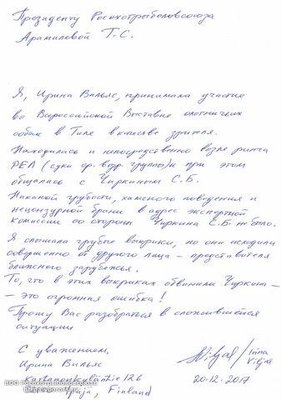 Президенту Росохотрыболовсоюза
Арамилевой Т.С.
Я, Ирина Вильяс, принимала участие
во Всероссийской Выставке охотничьих
собак в Туле в качестве зрителя.
Находилась и непосредственно возле ринга
РЕЛ (суки ср. возр группы) и при этом
общалась с Чиркиным С.Б.
Никакой грубости, хамского поведения и
нецензурной брани в адрес экспертной
комиссии со стороны Чиркина С.Б. не было.
Я слышала грубые выкрики, но они исходили
совершенно от другого лица - представителя
ближнего зарубежья.
То, что в этих выкриках обвинили Чиркина -
- это огромная ошибка!
Прошу Вас разобраться в сложившейся
ситуации
С уважением,
Ирина Вильяс
12 б
Finland
/ Irina
Viljas
20.12.2017